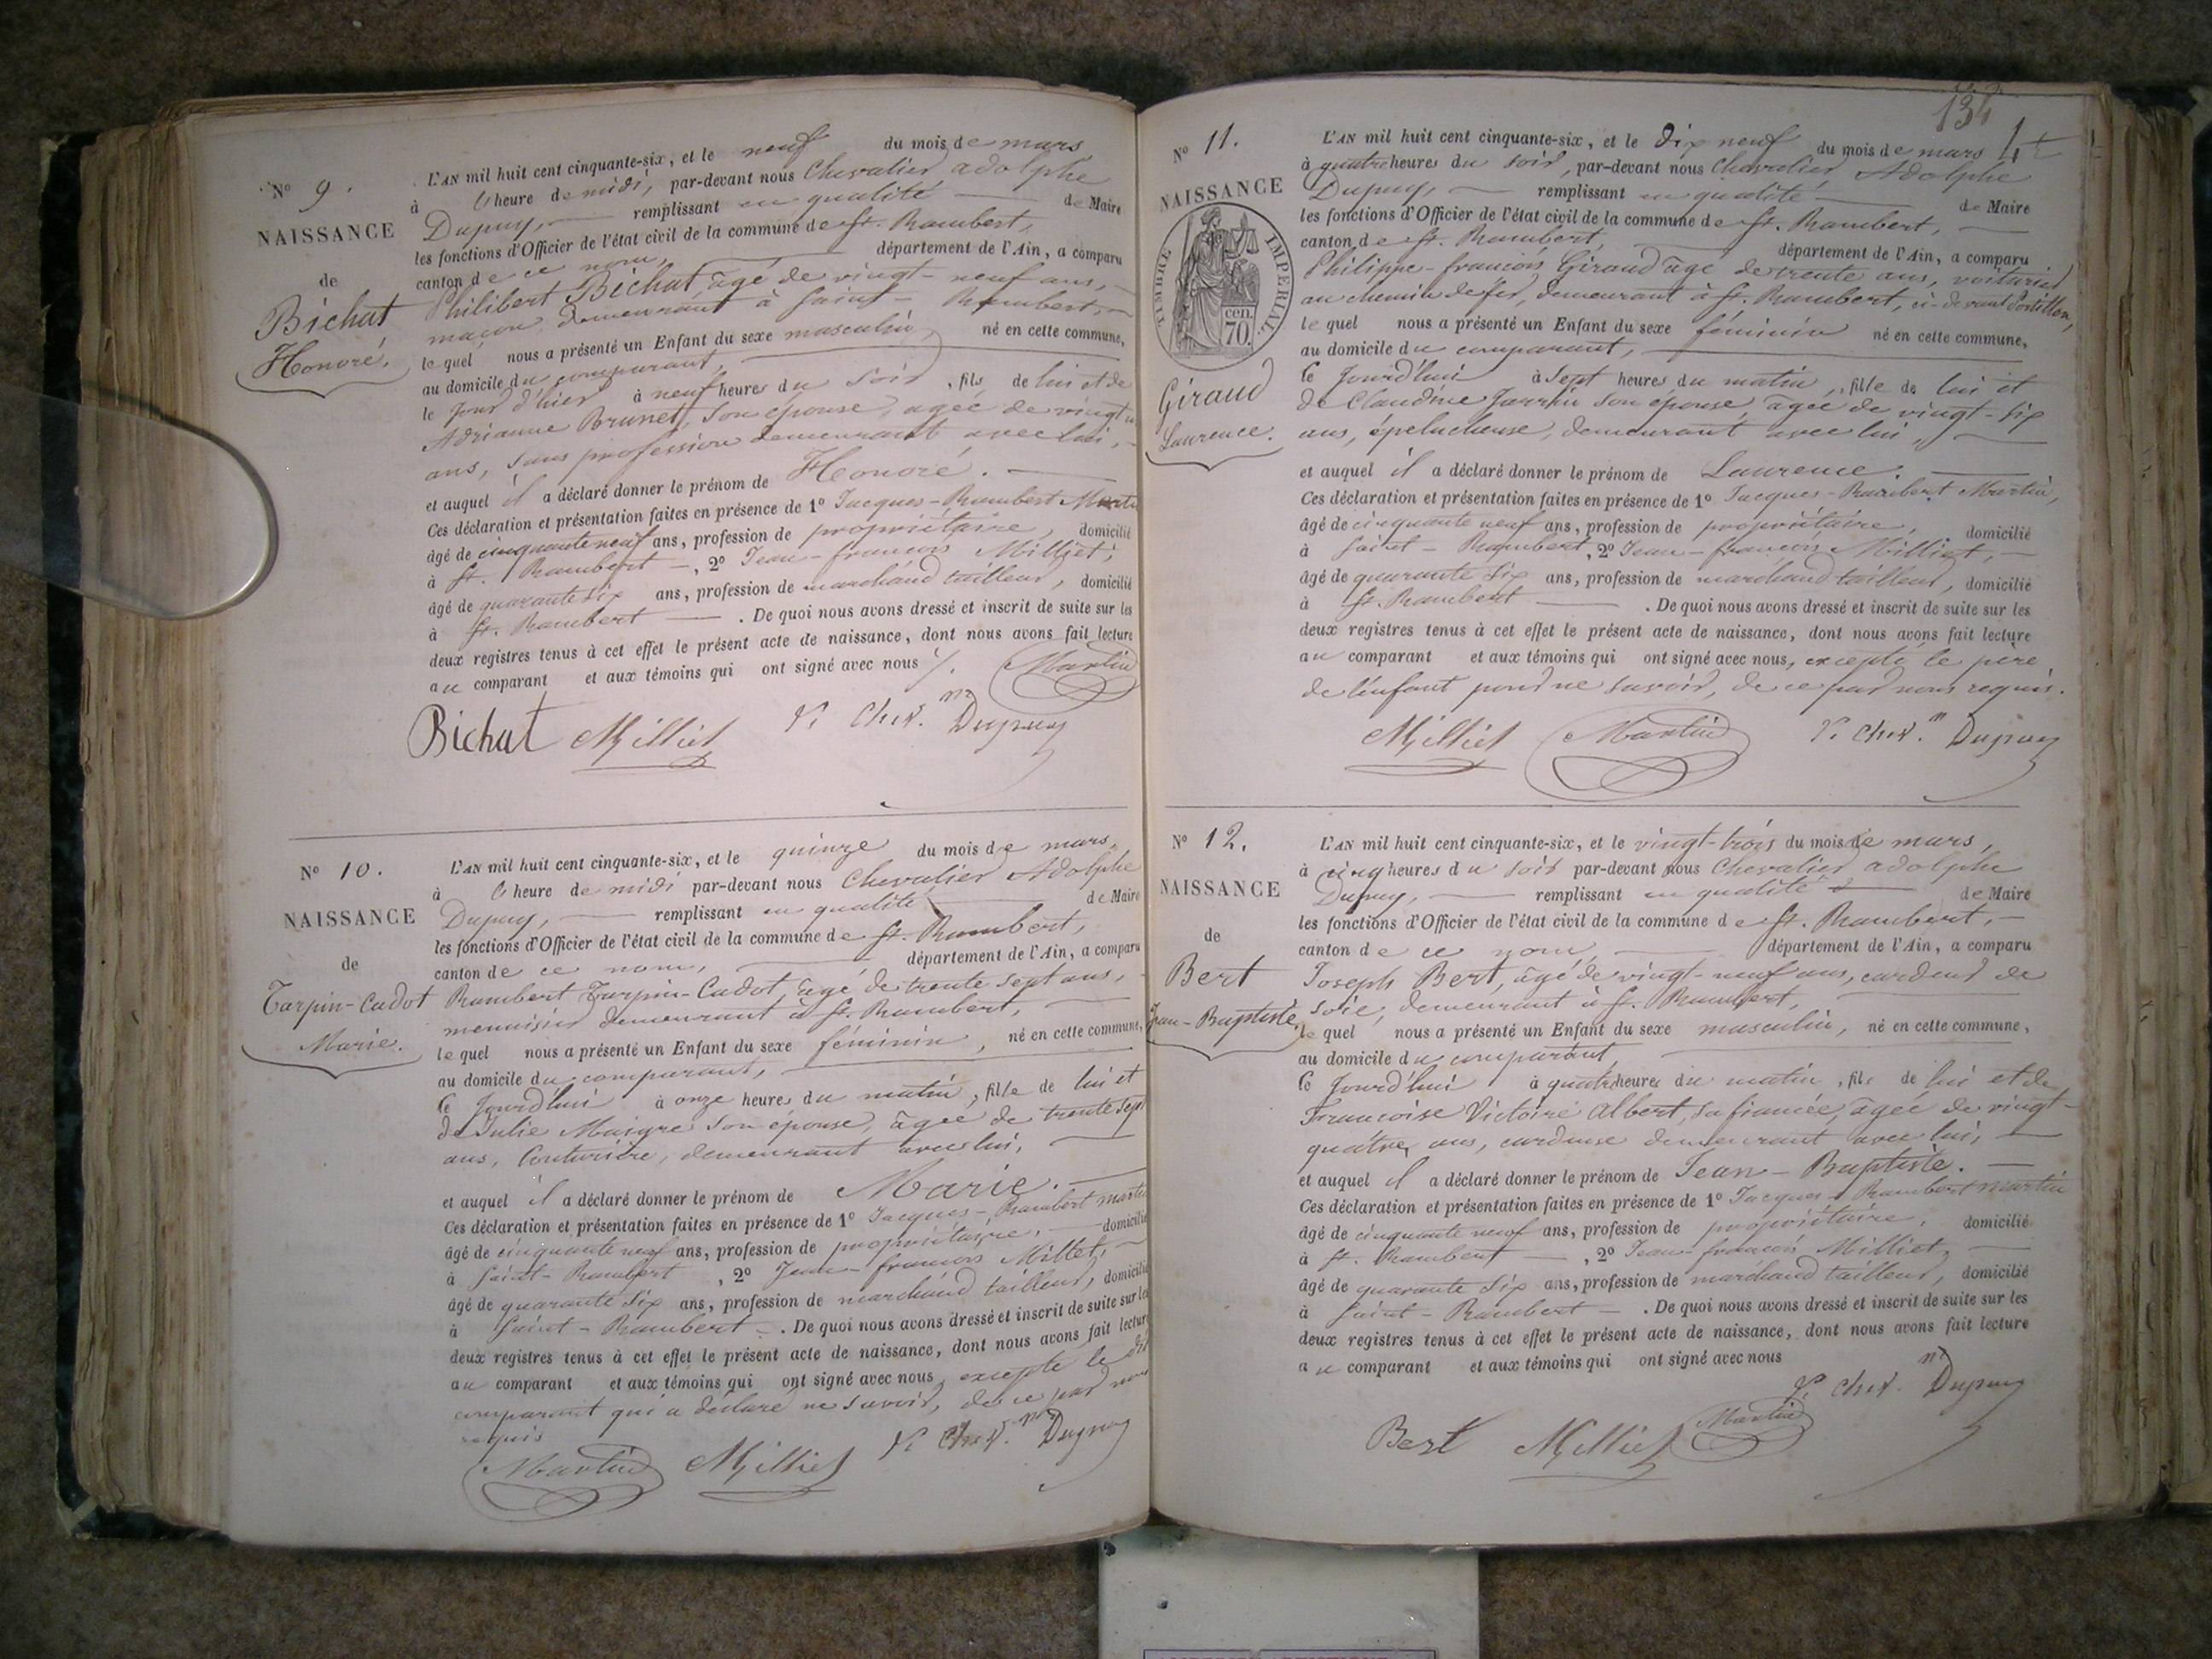 N° 9.
NAISSANCE
de
Bichat
Honoré.
L'AN mil huit cent cinquante-six, et le neuf du mois de mars
à l'heure de midi, par-devant nous Chevalier adolphe
Dupuy, remplissant en qualité de Maire
les fonctions d'Officier de l'état civil de la commune de St. Rambert,
canton de ce nom, département de l'Ain, a comparu
Philibert Bichat âgé de vingt-neuf ans,
maçon demeurant à Saint-Rambert,
lequel nous a présenté un Enfant du sexe masculin, né en cette commune,
au domicile du comparant,
le jour d'hier à neuf heures du soir, fils de lui et de
Adrianne Brunet, son épouse, agée de vingt
ans, sans profession demeurant avec lui,
et auquel il a déclaré donner le prénom de Honoré.
Ces déclaration et présentation faites en présence de 1° Jacques-Rambert Marti
âgé de cinquante neuf ans, profession de propriétaire, domicilié
à St. Rambert, 2° Jean-francois Milliet,
âgé de quarante six ans, profession de marchand tailleur, domicilié
à St. Rambert. De quoi nous avons dressé et inscrit de suite sur les
deux registres tenus à cet effet le présent acte de naissance, dont nous avons fait lecture
au comparant et aux témoins qui ont signé avec nous
Martin
Bichat Milliet Dupuy
N° 10.
NAISSANCE
de
Tarpin-Cadot
Marie.
L'AN mil huit cent cinquante-six, et le quinze du mois de mars,
à l'heure de midi par-devant nous Chevalier Adolphe
Dupuy, remplissant en qualité de Maire
les fonctions d'Officier de l'état civil de la commune de St. Rambert,
canton de ce nom, département de l'Ain, a comparu
Rambert Tarpin-Cadot âgé de trente sept ans,
menuisier demeurant à St. Rambert,
lequel nous a présenté un Enfant du sexe féminin, né en cette commune,
au domicile du comparant,
ce jourd'hui à onze heures du matin, fille de lui et
de Julie Maigre son épouse, âgée de trente sept
ans, Couturière, demeurant avec lui,
et auquel il a déclaré donner le prénom de Marie.
Ces déclaration et présentation faites en présence de 1° Jacques-Rambert marti
âgé de cinquante neuf ans, profession de propriétaire, domicilié
à Saint-Rambert, 2° Jean-francois Millet,
âgé de quarante six ans, profession de marchand tailleur, domicilié
à Saint-Rambert. De quoi nous avons dressé et inscrit de suite sur les
deux registres tenus à cet effet le présent acte de naissance, dont nous avons fait lecture
au comparant et aux témoins qui ont signé avec nous, excepté le
comparant qui a déclaré ne savoir, de ce par nous
requis
Martin Milliet Dupuy
134
N° 11.
NAISSANCE
TIMBRE IMPERIAL
70 cen.
Giraud
Laurence.
L'AN mil huit cent cinquante-six, et le dix neuf du mois de mars
à quatre heures du soir, par-devant nous Chevalier Adolphe
Dupuy, remplissant en qualité de Maire
les fonctions d'Officier de l'état civil de la commune de St. Rambert,
canton de St. Rambert, département de l'Ain, a comparu
Philippe-francois Giraud âgé de trente ans, voiturier
au chemin de fer, demeurant à St. Rambert, ci-devant Postillon,
lequel nous a présenté un Enfant du sexe féminin né en cette commune,
au domicile du comparant,
ce jourd'hui à sept heures du matin, fille de lui et
de Claudine son épouse, âgée de vingt-six
ans, épelucheuse, demeurant avec lui,
et auquel il a déclaré donner le prénom de Laurence.
Ces déclaration et présentation faites en présence de 1° Jacques-Rambert Martin,
âgé de cinquante neuf ans, profession de propriétaire, domicilié
à Saint-Rambert, 2° Jean-francois Milliet,
âgé de quarante six ans, profession de marchand tailleur, domicilié
à St. Rambert. De quoi nous avons dressé et inscrit de suite sur les
deux registres tenus à cet effet le présent acte de naissance, dont nous avons fait lecture
au comparant et aux témoins qui ont signé avec nous, excepté le père
de l'enfant pour ne savoir, de ce par nous requis.
Milliet Martin Dupuy
N° 12.
NAISSANCE
de
Bert
Jean-Baptiste.
L'AN mil huit cent cinquante-six, et le vingt-trois du mois de mars,
à cinq heures du soir par-devant nous Chevalier adolphe
Dupuy, remplissant en qualité de Maire
les fonctions d'Officier de l'état civil de la commune de St. Rambert,
canton de ce nom, département de l'Ain, a comparu
Joseph Bert, âgé de vingt-neuf ans, cardeur de
soie, demeurant à St. Rambert,
lequel nous a présenté un Enfant du sexe masculin, né en cette commune,
au domicile du comparant,
ce jourd'hui à quatre heures du matin, fils de lui et de
Francoise Victoire Albert, sa fiancée, âgée de vingt-
quatre ans, cardeuse demeurant avec lui,
et auquel il a déclaré donner le prénom de Jean-Baptiste.
Ces déclaration et présentation faites en présence de 1° Jacques-Rambert Martin
âgé de cinquante neuf ans, profession de propriétaire, domicilié
à St. Rambert, 2° Jean-francois Milliet,
âgé de quarante six ans, profession de marchand tailleur, domicilié
à Saint-Rambert. De quoi nous avons dressé et inscrit de suite sur les
deux registres tenus à cet effet le présent acte de naissance, dont nous avons fait lecture
au comparant et aux témoins qui ont signé avec nous
Dupuy
Bert Milliet Martin